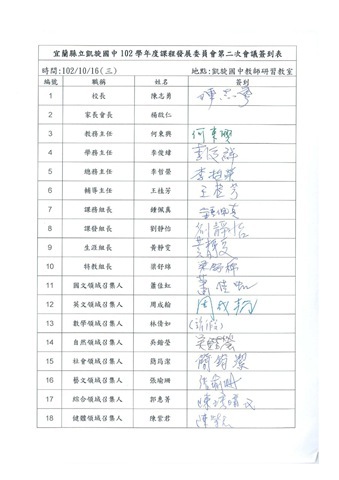 宜蘭縣立凱旋國中102學年度課程發展委員會第二次會議簽到表
時間:102/10/16(三) 地點:凱旋國中教師研習教室
編號 職稱 姓名 簽到
1 校長 陳志勇 陳志勇
2 家長會長 楊啟仁
3 教務主任 何東興 何東興
4 學務主任 李俊緯
5 總務主任 李哲榮 李哲榮
6 輔導主任 王桂芳 王桂芳
7 課務組長 鍾佩真 鍾佩真
8 課發組長 劉靜怡 劉靜怡
9 生涯組長 黃靜雯 黃靜雯
10 特教組長 梁舒
11 國文領域召集人 蕭佳虹 蕭佳虹
12 英文領域召集人 周成翰 周成翰
13 數學領域召集人 林倩如 (請假)
14 自然領域召集人 吳鎧瑩 吳鎧瑩
15 社會領域召集人 簡筠潔 簡筠潔
16 藝文領域召集人 張瑜珊 張瑜珊
17 綜合領域召集人 郭惠菁
18 健體領域召集人 陳紫君